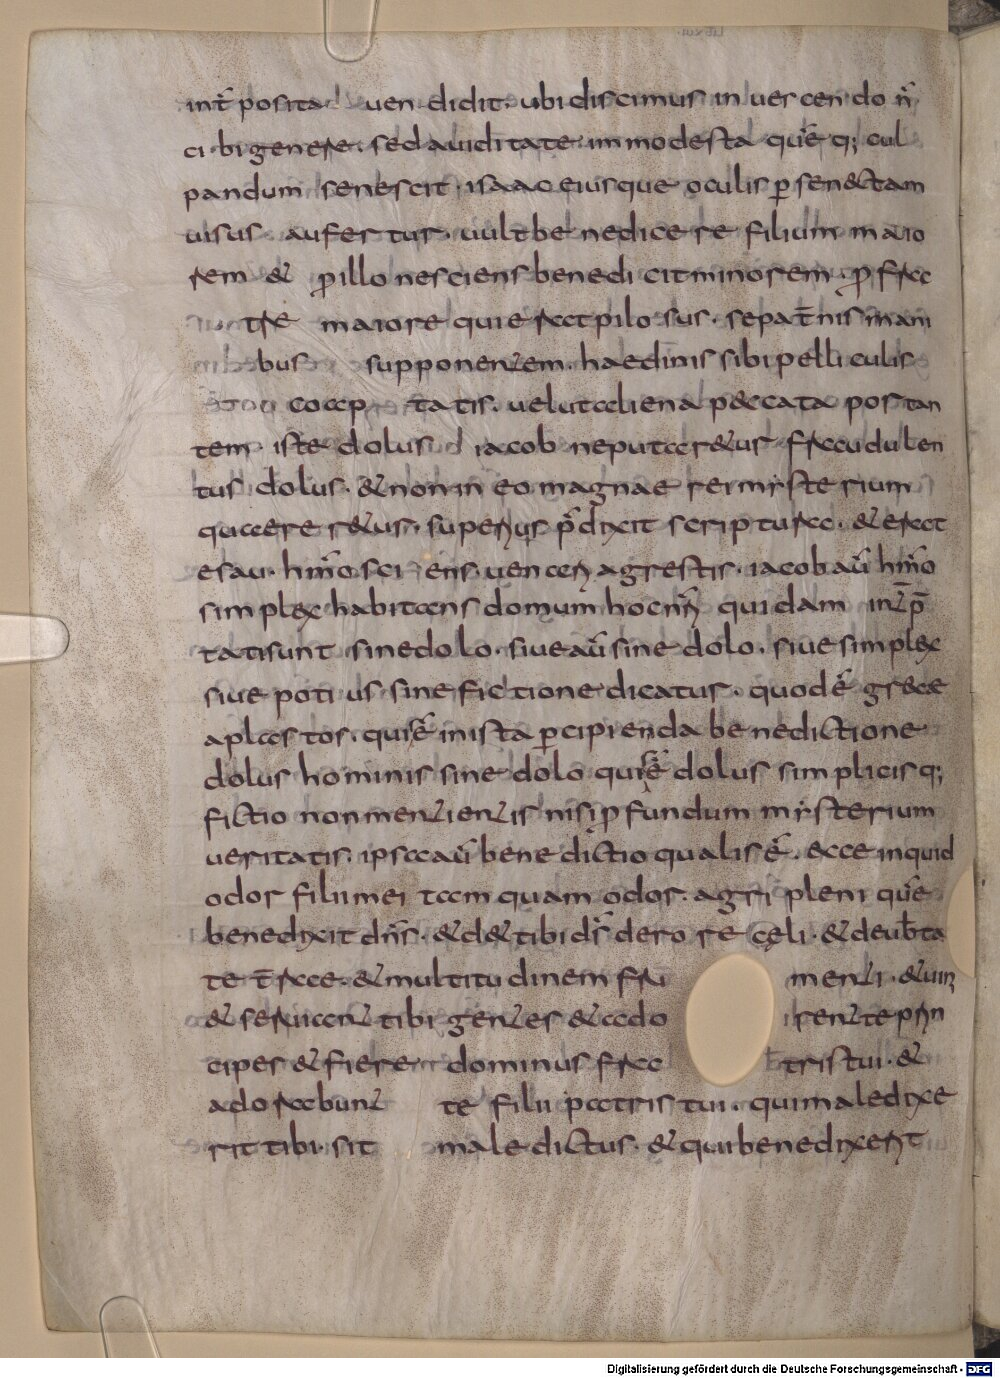 int̄ posita uendidit. ubi discimus in uescendo n̄
cibi genere. sed auiditate immodesta quēq; cul
pandum senescit. isaac eiusque oculis p̱ senectam
uisus aufertur. uult benedicere filium maio
rem & p̱ illo nesciens benedicit minorem. p̱ fra
tre maiore qui erat pilosus. se pat̄nis mani
bus supponentem. haedinis sibi pelliculis
coap tatis. uelut aliena peccata portan
tem. iste dolus iacob ne putaretur fraudulen
tus dolus. & non in eo magnae rei mysterium
quaereretur. superius p̄dixit scriptura. & erat
esau. hm̄o sciens uenari agrestis. iacob aū hm̄o
simplex habitans domum hoc nr̄i quidam int̄p̄
tati sunt sine dolo. siue aū sine dolo. siue simplex
siue potius sine fictione dicatur. quod ē grece
aplastos. quis ē in ista p̱cipienda benedictione
dolus hominis sine dolo quis ē dolus simplicis q;
fictio non mentientis nisi p̱fundum mysterium
ueritatis. ipsa aū benedictio qualis ē. ecce inquid
odor filii mei tam quam odor agri pleni quē
benedixit dn̄s. & det tibi ds̄ de rore cęli. & de ub̄ta
te t̄rae. & multitudinem fru menti. & uini
& seruiant tibi gentes & ado rent te prin
cipes & fiere dominus fra tris tui. &
adorabunt te filii patris tui. qui maledixe
rit tibi sit maledictus. & qui benedixerit
Digitalisierung gefördert durch die Deutsche Forschungsgemeinschaft - DFG